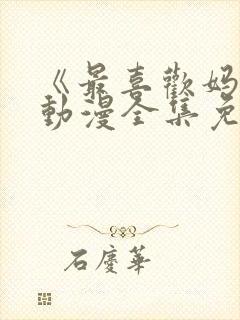 《最喜歡妈
動漫全集免
石慶華